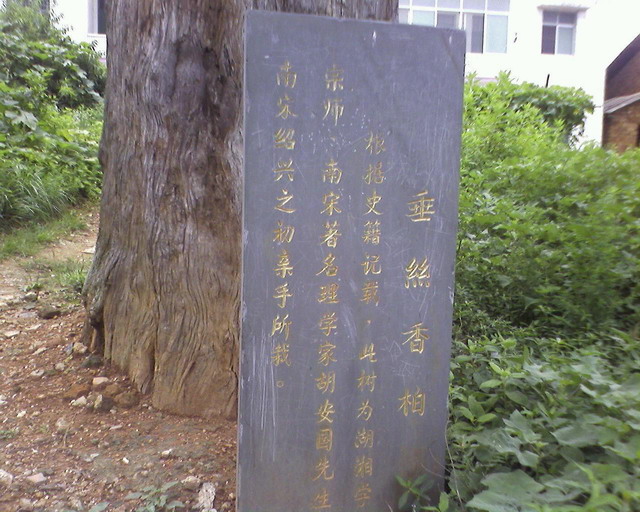 垂絲香柏
根据史籍记载，此树为湖湘学
宗师、南宋著名理学家胡安国先生
南宋绍兴之初亲手所栽。